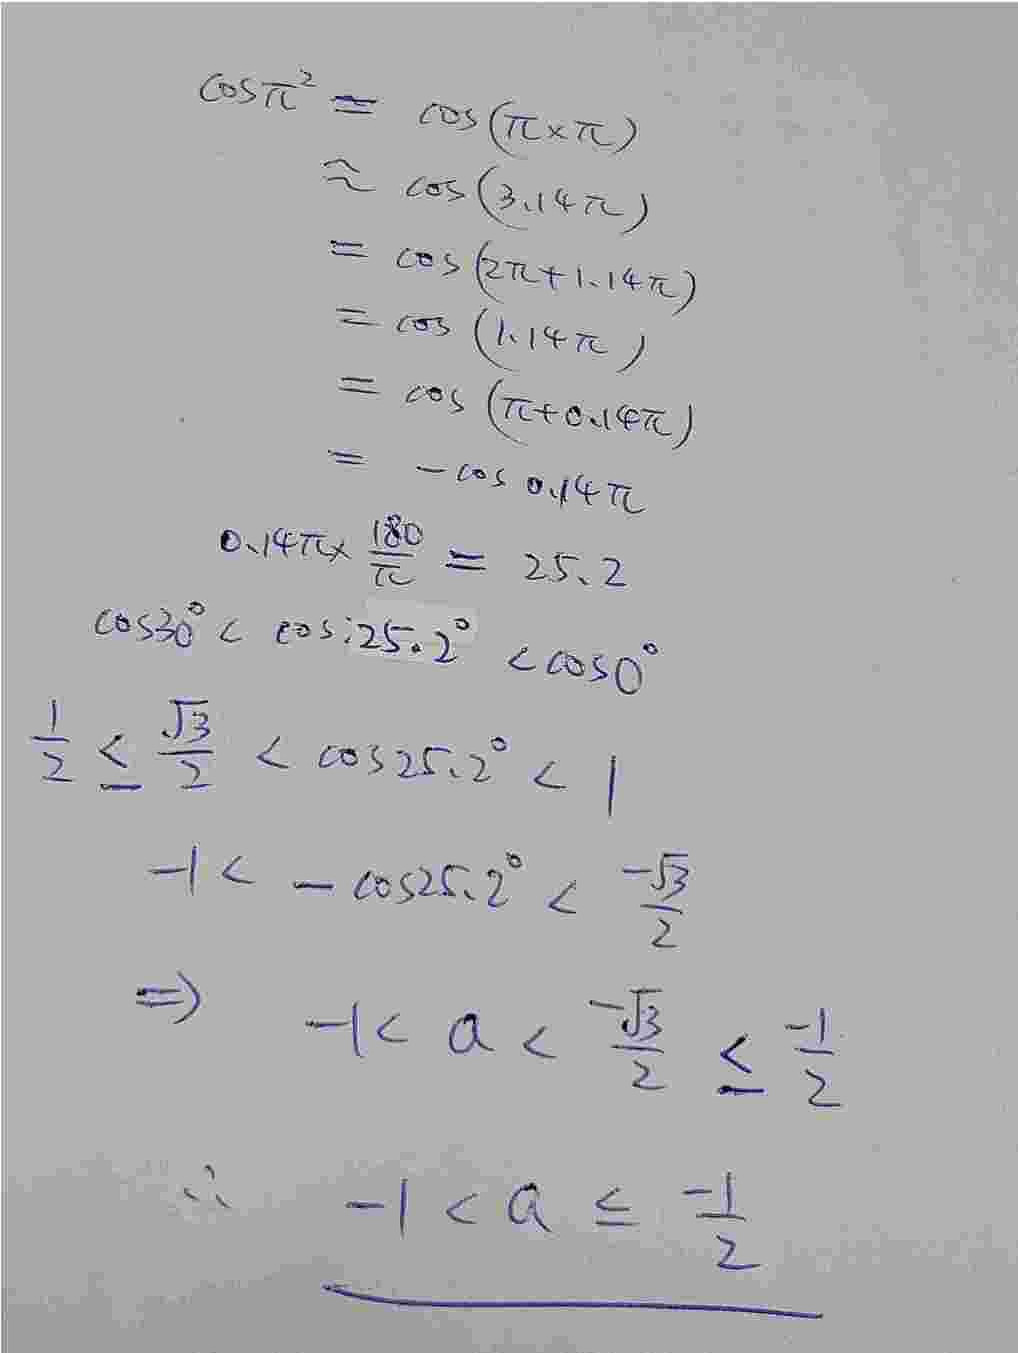 cosπ² = cos(π×π)
≈ cos(3.14π)
= cos(2π+1.14π)
= cos(1.14π)
= cos(π+0.14π)
= -cos 0.14π
0.14π× 180/π = 25.2
cos30° < cos 25.2° < cos0°
1/2 ≤ √3/2 < cos25.2° < 1
-1 < -cos25.2° < -√3/2
⇒ -1 < a < -√3/2 ≤ -1/2
∴ -1 < a ≤ -1/2